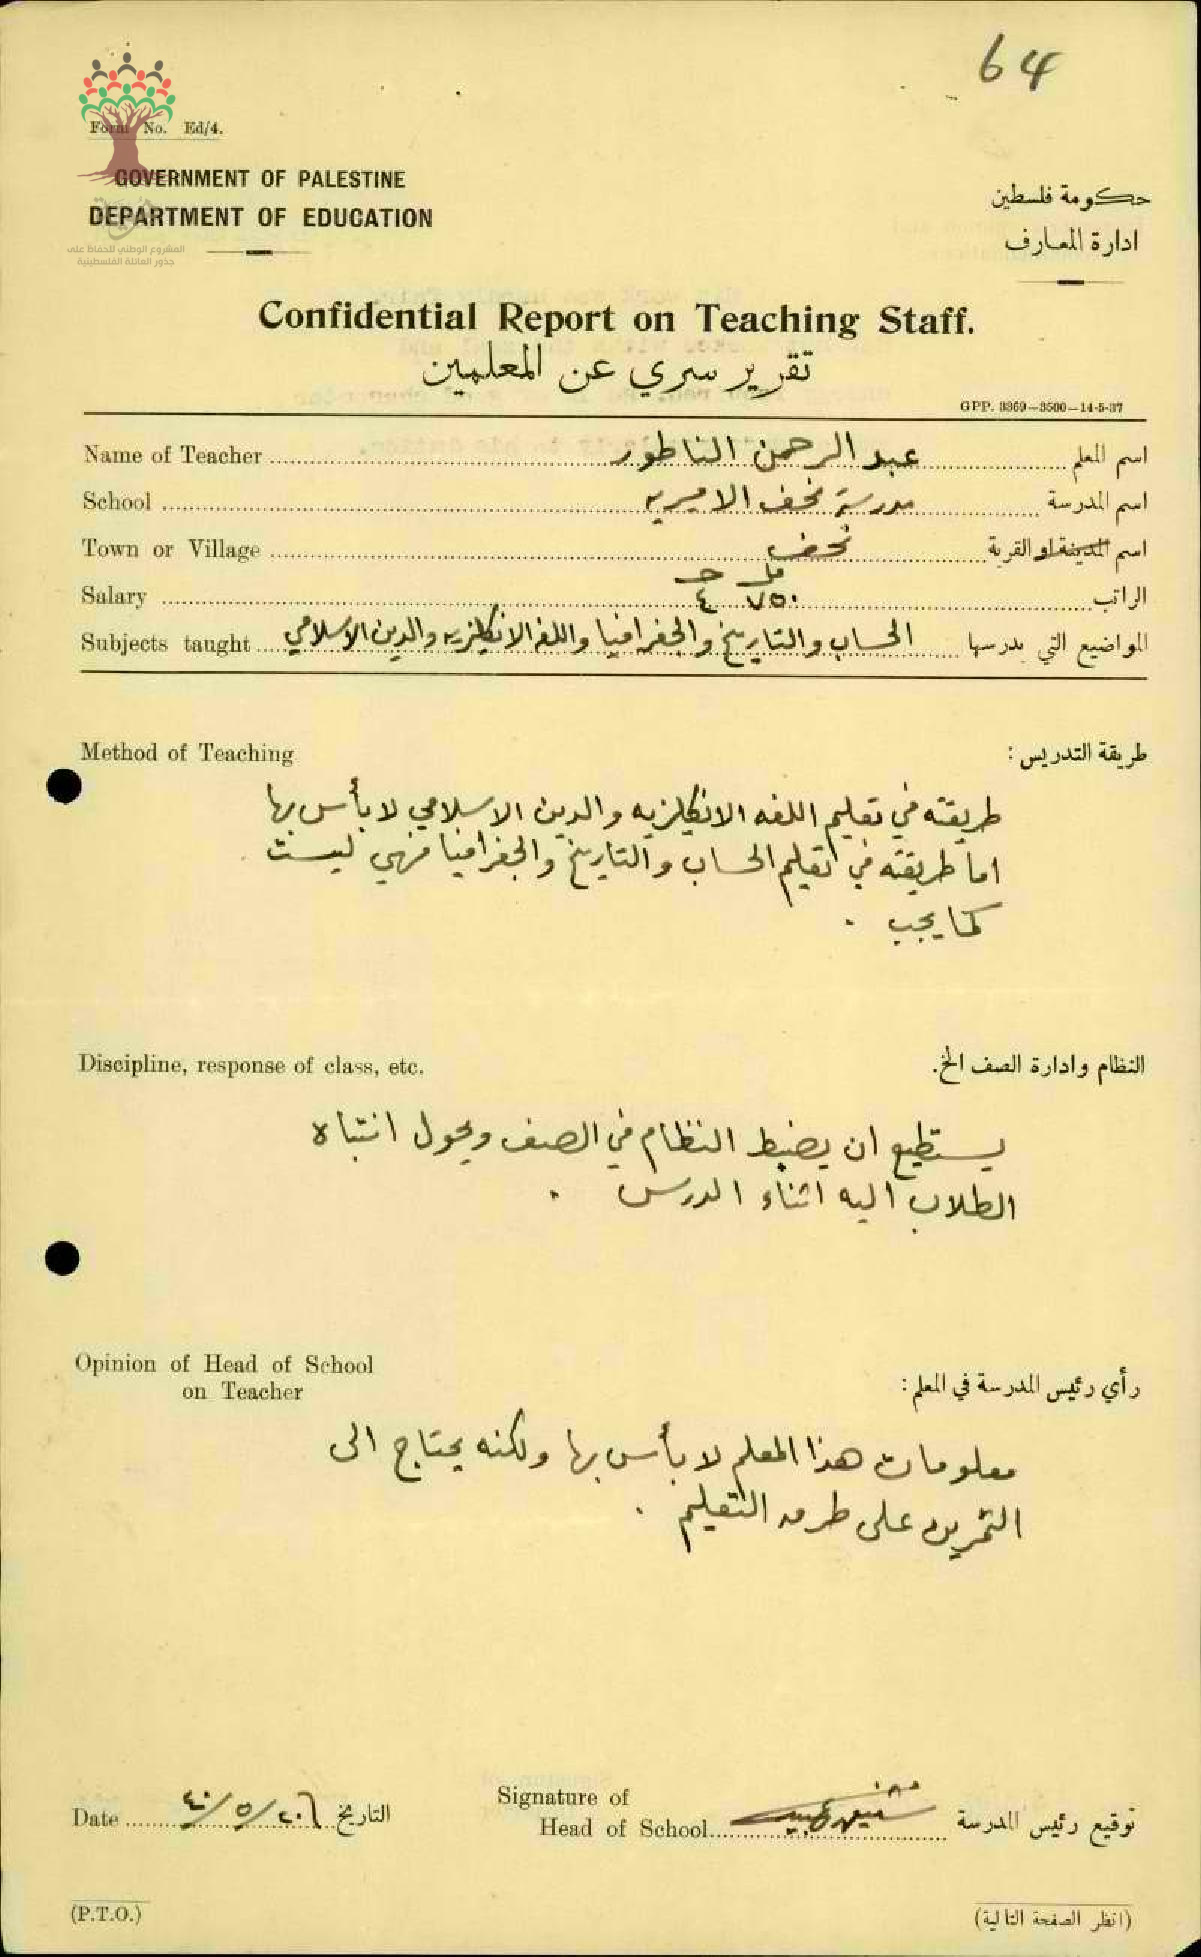 64
Form No. Ed/4.
GOVERNMENT OF PALESTINE
DEPARTMENT OF EDUCATION
المشروع الوطني للحفاظ على
جذور العائلة الفلسطينية
حكومة فلسطين
ادارة المعارف
Confidential Report on Teaching Staff.
تقرير سري عن المعلمين
GPP. 3369—3500—14-5-37
Name of Teacher عبد الرحمن الناطور اسم المعلم
School مدرسة نحف الاميريه اسم المدرسة
Town or Village نحف اسم المدينة او القرية
مل ج
Salary ٧٥٠ ٤ الراتب
Subjects taught الحساب والتاريخ والجغرافيا واللغه الانكليزيه والدين الاسلامي المواضيع التي يدرسها
Method of Teaching طريقة التدريس :
طريقته في تعليم اللغه الانكليزيه والدين الاسلامي لا بأس بها
اما طريقته في تعليم الحساب والتاريخ والجغرافيا فهي ليست
كما يجب .
Discipline, response of class, etc. النظام وادارة الصف الخ.
يستطيع ان يضبط النظام في الصف ويحول انتباه
الطلاب اليه اثناء الدرس .
Opinion of Head of School
on Teacher
رأي رئيس المدرسة في المعلم :
معلومات هذا المعلم لا بأس بها ولكنه يحتاج الى
التمرين على طرق التعليم .
Signature of
Head of School توقيع رئيس المدرسة
Date التاريخ
(P.T.O.)
(انظر الصفحة التالية)